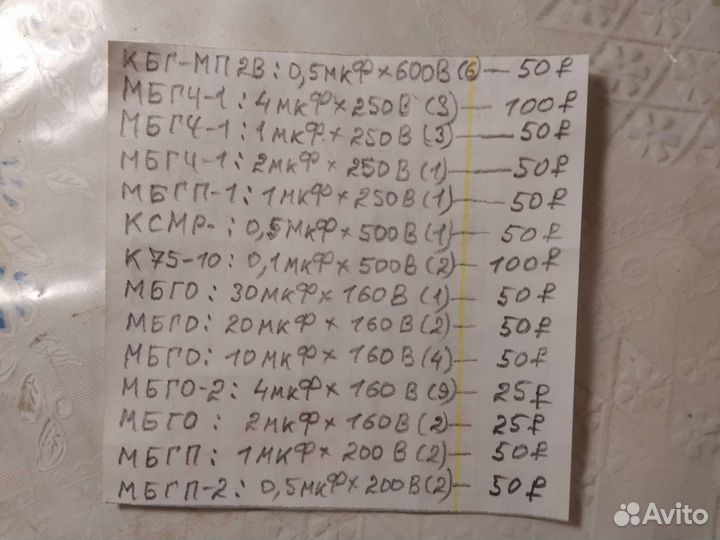 КБГ-МП2В: 0,5мкФ×600В(6)—50₽
МБГЧ-1: 4мкФ×250В(3)—100₽
МБГЧ-1: 1мкФ×250В(3)—50₽
МБГЧ-1: 2мкФ×250В(1)—50₽
МБГП-1: 1мкФ×250В(1)—50₽
КСМР-: 0,5мкФ×500В(1)—50₽
К75-10: 0,1мкФ×500В(2)—100₽
МБГО: 30мкФ×160В(1)—50₽
МБГО: 20мкФ×160В(2)—50₽
МБГО: 10мкФ×160В(4)—50₽
МБГО-2: 4мкФ×160В(9)—25₽
МБГО: 2мкФ×160В(2)—25₽
МБГП: 1мкФ×200В(2)—50₽
МБГП-2: 0,5мкФ×200В(2)—50₽
Avito